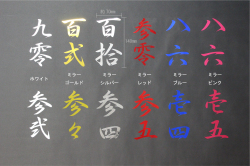 85.73mm
九 百 百 参 八 八
零 弐 拾 零 六 六
ホワイト
ミラー ゴールド
ミラー シルバー
ミラー レッド
ミラー ブルー
ミラー ピンク
参 参 参 参 壱 壱
弐 々 四 五 四 五